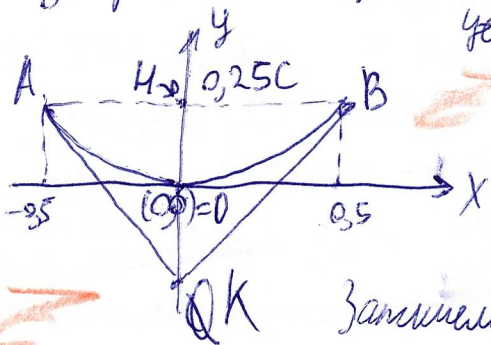 У
A H 0,25C B
-0,5 (0,0)=0 0,5 X
K
Запишем